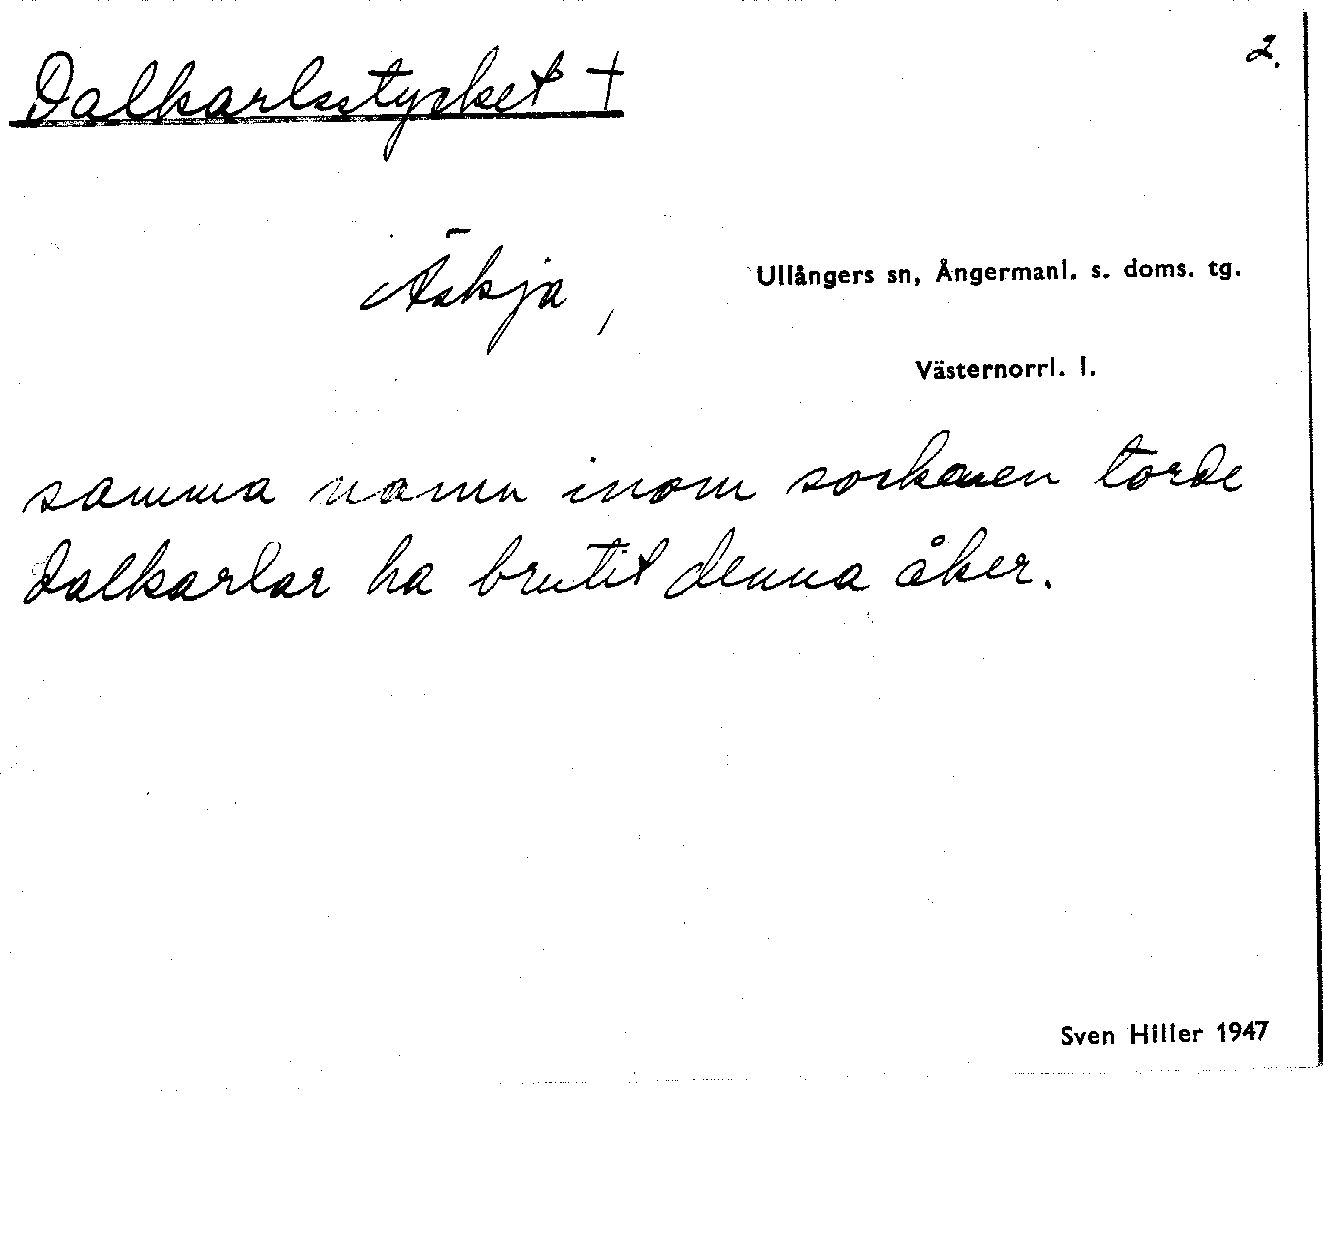 2.
Dalkarlsstycket +
Äskja,
Ullångers sn, Ångermanl. s. doms. tg.
Västernorrl. l.
samma namn inom socknen torde
dalkarlar ha brutit denna åker.
Sven Hiller 1947